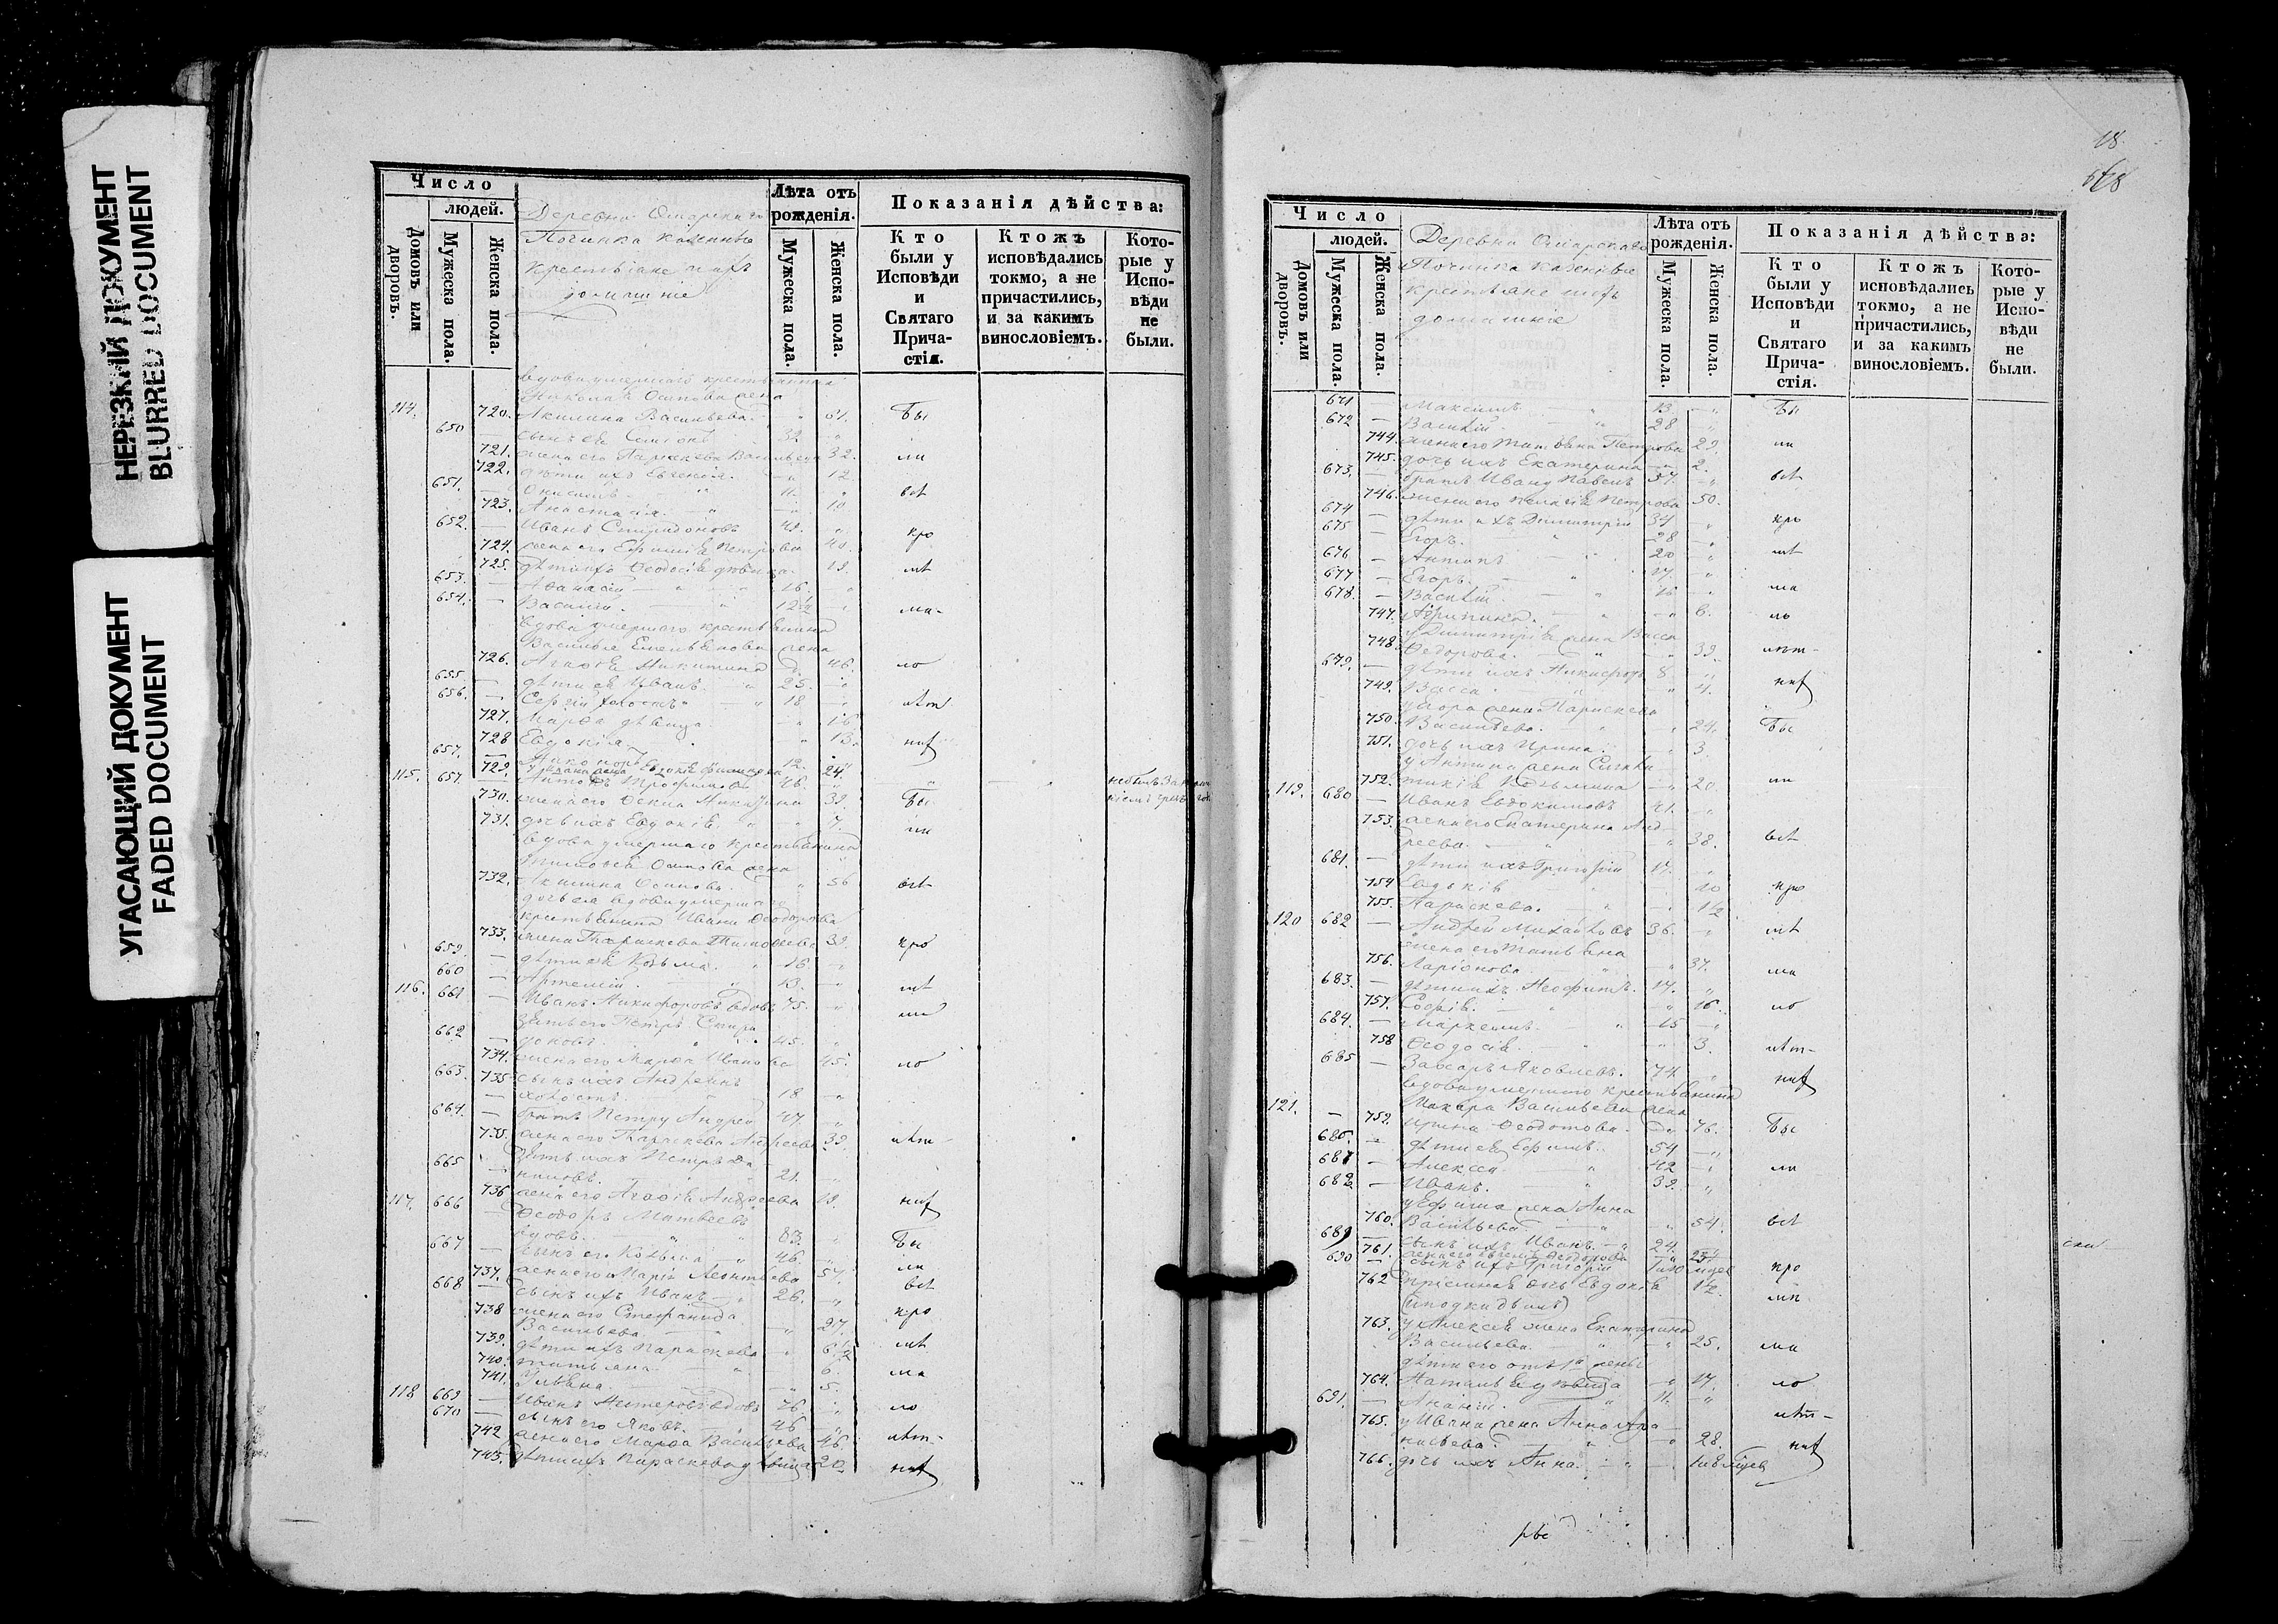 НЕРЕЗКИЙ ДОКУМЕНТ
BLURRED DOCUMENT
УГАСАЮЩИЙ ДОКУМЕНТ
FADED DOCUMENT
Число
людей.
Домовъ или дворовъ.
Мужеска пола.
Женска пола.
Деревни
Починка казенные
крестьяне
Лѣта отъ рожденія.
Мужеска пола.
Женска пола.
Показанія дѣйства:
Кто были у Исповѣди и Святаго Прича-стія.
Ктожъ исповѣдались токмо, а не причастились, и за какимъ винословіемъ.
Кото-рые у Испо-вѣди не были.
вдова умершаго крестьянина
Осипова жена
114. 720. Акилина Васильева 61. Бы
650 — сынъ ея 32.
721. жена его Параскева Васильева 32. ли
722. дѣти ихъ Евгенія 12.
651. — Онисимъ 11. всѣ
723. Анастасія 10
652. — Иванъ Спиридоновъ 42. кро
724. жена его Ефимія Петрова 40.
725. дѣти ихъ Феодосія дѣвица 19. мѣ
653. — Афанасій 16.
654. — Василій 12½ ма-
вдова умершаго крестьянина
Василья Емельянова жена
726. Никитина 46. ло
655 — дѣти ея Иванъ 25.
656. — Сергій холостъ 18 лѣт
727. Марфа дѣвица 16
728 Евдокія 13. ниχ
657. — Никаноръ 12.
729. жена Евдокія 24.
115. 657. — Трофимовъ 46.
730. жена его Фекла Никитина 39. Бы
731. дочь ихъ Евдокія 7. ли
вдова умершаго крестьянина
Тимофея Осипова жена
732. Акилина Осипова 56 всѣ
дочь ея вдова умершаго
крестьянина Ивана Феодорова
733. жена Параскева Тимофеева 39. кро
659. — дѣти ея Козьма 16.
660 — Артемій 13. мѣ
116. 661 — Иванъ Никифоровъ вдовъ 75. ма
зять его Петръ Спири
662 — доновъ 45.
734. жена его Марфа Иванова 45. ло
663. 735 сынъ ихъ Андреянъ
— холостъ 18
664. — братъ Петру Андрей 47.
735. жена его Параскева Андреева 39. лѣт-
зять ихъ Петръ Да
665 — ниловъ 21.
736 жена его Агафія Андреева 19. ниχ
117. 666 — Феодоръ Матвеевъ
вдовъ 83. Бы
667 — сынъ его Козьма 46. ли
737. жена его Марія Леонтьева 57.
668 — сынъ ихъ Иванъ 26. всѣ
738 жена его Стефанида
Васильева 27. кро
739. дѣти ихъ Параскева 6½ мѣ
740. Татьяна 6.
741. Ульяна 5. ма
118 669 — Иванъ вдовъ 76. ло
670 — сынъ его Яковъ 46
742 жена его Марфа Васильева 46. лѣт-
743. дѣти ихъ Параскева дѣвица 20 ниχ
18.
668
Число
людей.
Домовъ или дворовъ.
Мужеска пола.
Женска пола.
Деревни
Починка казенные
крестьяне
домашніе
Лѣта отъ рожденія.
Мужеска пола.
Женска пола.
Показанія дѣйства:
Кто были у Исповѣди и Святаго Прича-стія.
Ктожъ исповѣдались токмо, а не причастились, и за какимъ винословіемъ.
Кото-рые у Испо-вѣди не были.
671 — Максимъ 13 Бы
672 — Василій 28
744. жена его Татьяна Петрова 29. ли
745. дочь ихъ Екатерина 2.
673. — братъ Ивану Павелъ 57. всѣ
746. жена его Пелагія Петрова 50.
674 — дѣти ихъ Димитрій 34 кро
675 — Егоръ 28
676 — Антипъ 20 мѣ
677 — Егоръ 17.
678. — Василій 16 ма
747. Агрипина 6. ло
у Димитрія жена Васса
748. Федорова 39. лѣт-
679. — дѣти ихъ Никифоръ 8
749. Васса 4. ниχ
у Егора жена Параскева
750. Васильева 24. Бы
751. дочь ихъ Ирина 3.
у Антипа жена
752. Козьмина 20. ли
119. 680 — Иванъ Евдокимовъ 41.
753. жена его Екатерина Анд-
реева 38. всѣ
681. — дѣти ихъ Григорій 17.
754 Евдокія 10 кро
755. Параскева 1½
120 682 — Андрей Михайловъ 36. мѣ
жена его Татьяна
756. Ларіонова 37. ма
683. — дѣти ихъ Неофитъ 17.
757. Софія 16. ло
684. — Маркеллъ 15
758 Феодосія 3. лѣт-
685 — Захаръ Яковлевъ 74. ниχ
вдова умершаго крестьянина
Макара Васильева жена
121. 759. Ирина Феодотова 76. Бы
686. — дѣти ея Ефимъ 54
687 — Алексей 42 ли
688. — Иванъ 39.
у Ефима жена Анна
760. Васильева 54. всѣ
689 — сынъ ихъ Иванъ 24.
761. жена его Феодорова 25
690 — сынъ ихъ Григорій кро
762 Евдокія 1½ мѣ
763. у Алексея жена Екатерина
Васильева 25. ма
дѣти его отъ 1й жены
764. Наталья дѣвица 17. ло
691. — Ананій 11. лѣт-
765. у Ивана жена Анна
28. ниχ
766. дочь ихъ Анна